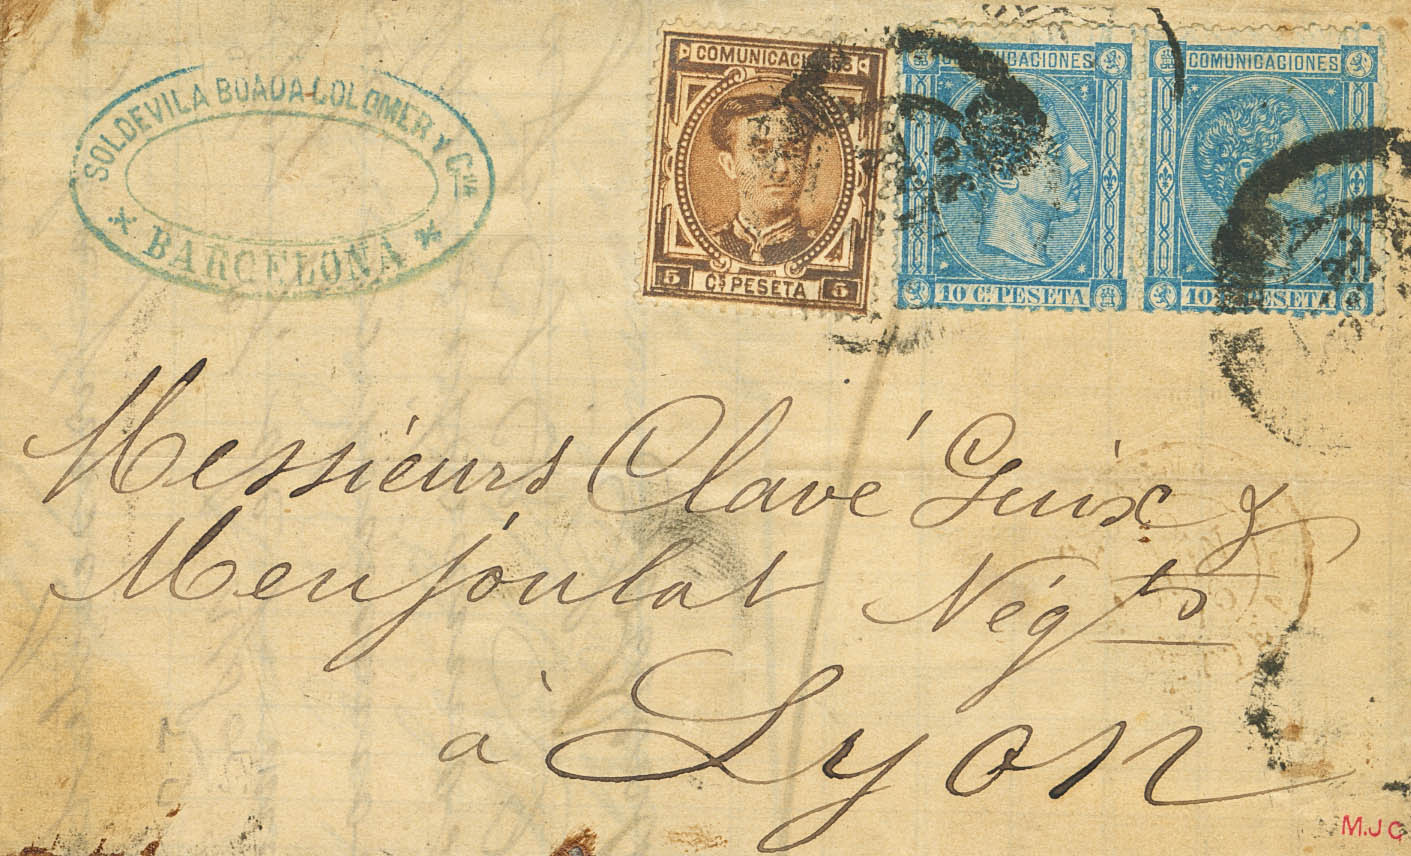 SOLDEVILA BOADA COLOMER Y Cia
BARCELONA
COMUNICACIONES
5 Cs PESETA 5
COMUNICACIONES
10 Cs PESETA
COMUNICACIONES
10 Cs PESETA
Messieurs Clavé Guix &
Menjoulat Négts
à Lyon
M.J G